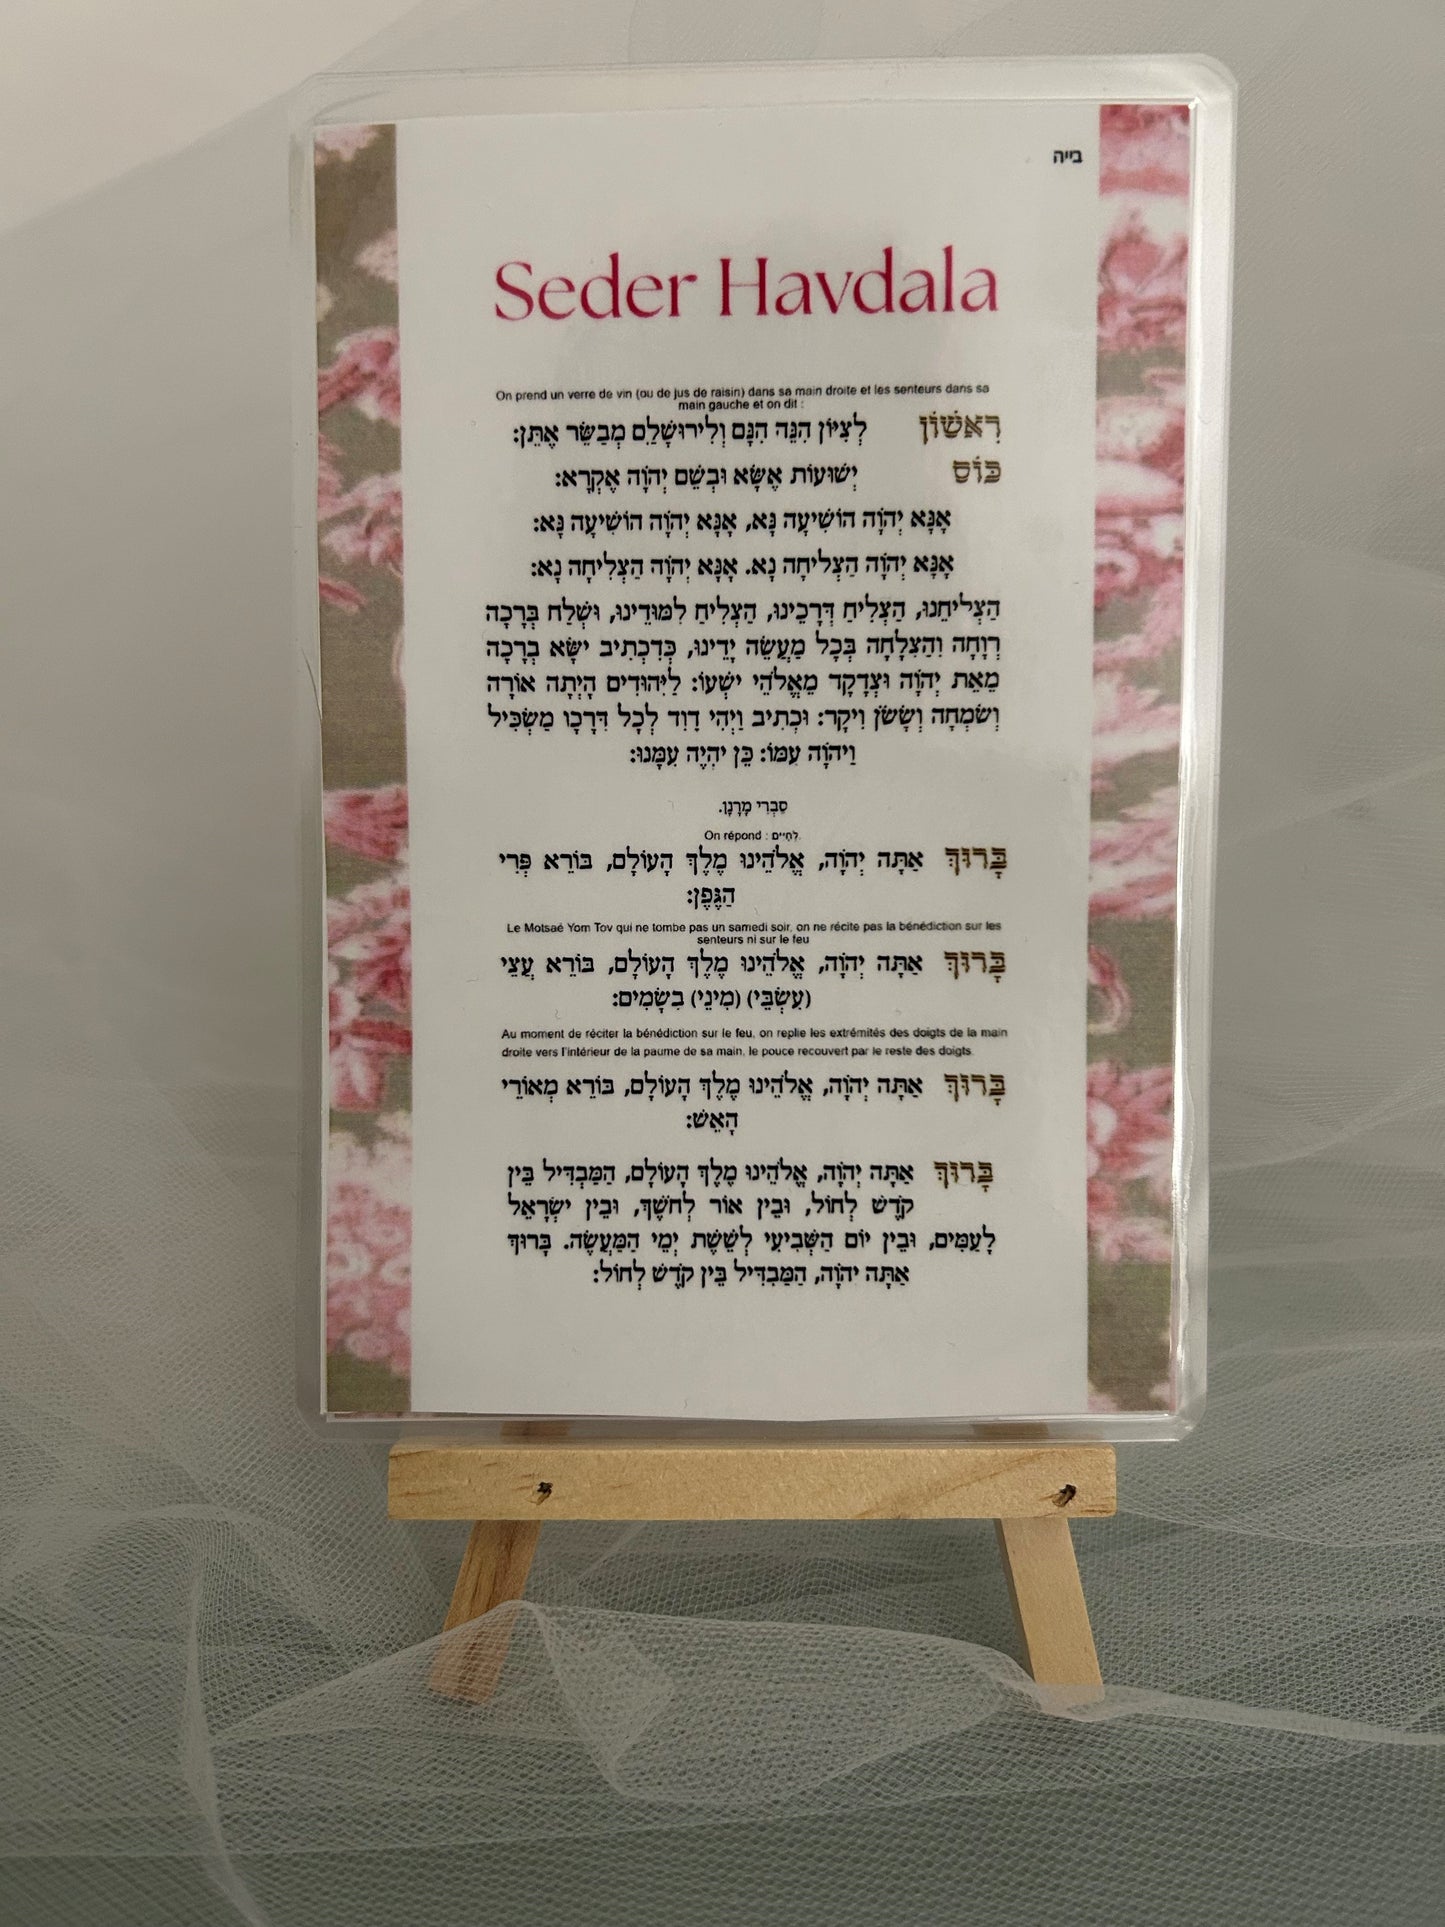 בייה
Seder Havdala
On prend un verre de vin (ou de jus de raisin) dans sa main droite et les senteurs dans sa
main gauche et on dit :
רִאשׁוֹן לְצִיּוֹן הִנֵּה הִנָּם וְלִירוּשָׁלַ‍ִם מְבַשֵּׂר אֶתֵּן:
כּוֹס יְשׁוּעוֹת אֶשָּׂא וּבְשֵׁם יְהֹוָה אֶקְרָא:
אָנָּא יְהֹוָה הוֹשִׁיעָה נָּא, אָנָּא יְהֹוָה הוֹשִׁיעָה נָּא:
אָנָּא יְהֹוָה הַצְלִיחָה נָא. אָנָּא יְהֹוָה הַצְלִיחָה נָא:
הַצְלִיחֵנוּ, הַצְלִיחַ דְּרָכֵינוּ, הַצְלִיחַ לִמּוּדֵינוּ, וּשְׁלַח בְּרָכָה
רְוָחָה וְהַצְלָחָה בְּכָל מַעֲשֵׂה יָדֵינוּ, כְּדִכְתִיב יִשָּׂא בְרָכָה
מֵאֵת יְהֹוָה וּצְדָקָה מֵאֱלֹהֵי יִשְׁעוֹ: לַיְּהוּדִים הָיְתָה אוֹרָה
וְשִׂמְחָה וְשָׂשֹׂן וִיקָר: וּכְתִיב וַיְהִי דָוִד לְכָל דְּרָכָו מַשְׂכִּיל
וַיהֹוָה עִמּוֹ: כֵּן יִהְיֶה עִמָּנוּ:
סַבְרִי מָרָנָן.
On répond : לְחַיִּים.
בָּרוּךְ אַתָּה יְהֹוָה, אֱלֹהֵינוּ מֶלֶךְ הָעוֹלָם, בּוֹרֵא פְּרִי
הַגֶּפֶן:
Le Motsaé Yom Tov qui ne tombe pas un samedi soir, on ne récite pas la bénédiction sur les
senteurs ni sur le feu
בָּרוּךְ אַתָּה יְהֹוָה, אֱלֹהֵינוּ מֶלֶךְ הָעוֹלָם, בּוֹרֵא עֲצֵי
(עִשְׂבֵּי) (מִינֵי) בְשָׂמִים:
Au moment de réciter la bénédiction sur le feu, on replie les extrémités des doigts de la main
droite vers l'intérieur de la paume de sa main, le pouce recouvert par le reste des doigts.
בָּרוּךְ אַתָּה יְהֹוָה, אֱלֹהֵינוּ מֶלֶךְ הָעוֹלָם, בּוֹרֵא מְאוֹרֵי
הָאֵשׁ:
בָּרוּךְ אַתָּה יְהֹוָה, אֱלֹהֵינוּ מֶלֶךְ הָעוֹלָם, הַמַּבְדִּיל בֵּין
קֹדֶשׁ לְחוֹל, וּבֵין אוֹר לְחֹשֶׁךְ, וּבֵין יִשְׂרָאֵל
לָעַמִּים, וּבֵין יוֹם הַשְּׁבִיעִי לְשֵׁשֶׁת יְמֵי הַמַּעֲשֶׂה. בָּרוּךְ
אַתָּה יְהֹוָה, הַמַּבְדִּיל בֵּין קֹדֶשׁ לְחוֹל: